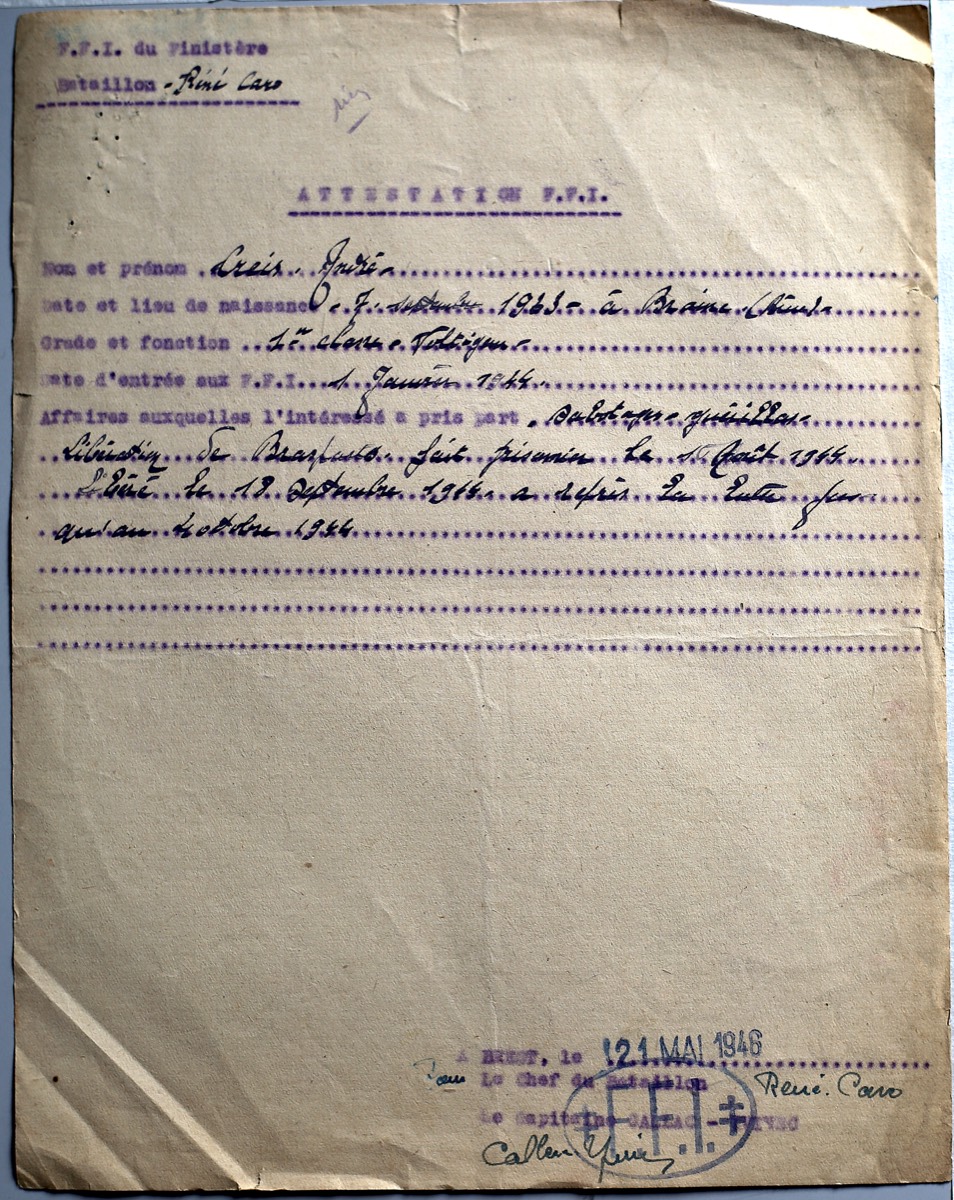 F.F.I. du Finistère
Bataillon - Réné Caro
ATTESTATION F.F.I.
Nom et prénom André
Date et lieu de naissance 7 septembre 1923 - à Braine (Aisne)
Grade et fonction 1ère classe - Voltigeur
Date d'entrée aux F.F.I. 1 Janvier 1944
Affaires auxquelles l'intéressé a pris part Sabotages - guérillas -
Libération de Brasparts - fait prisonnier le Août 1944
Libéré le 18 septembre 1944 - a repris la lutte jus-
qu'au 4 octobre 1944
A BREST, le 21 MAI 1946
Pour Le Chef du Bataillon René Caro
Le Capitaine
F.F.I.